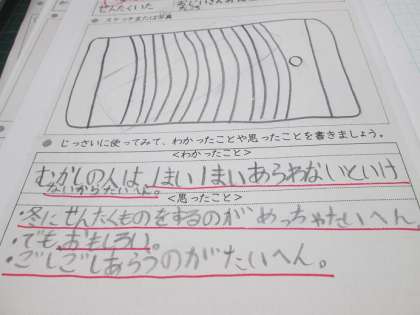 せんたくいた
●スケッチまたは写真
●じっさいに使ってみて、わかったことや思ったことを書きましょう。
＜わかったこと＞
むかしの人は、1まい1まいあらわないといけ
ないからたいへん。
＜思ったこと＞
・冬にせんたくものをするのがめっちゃたいへん。
・でもおもしろい。
・ごしごしあらうのがたいへん。